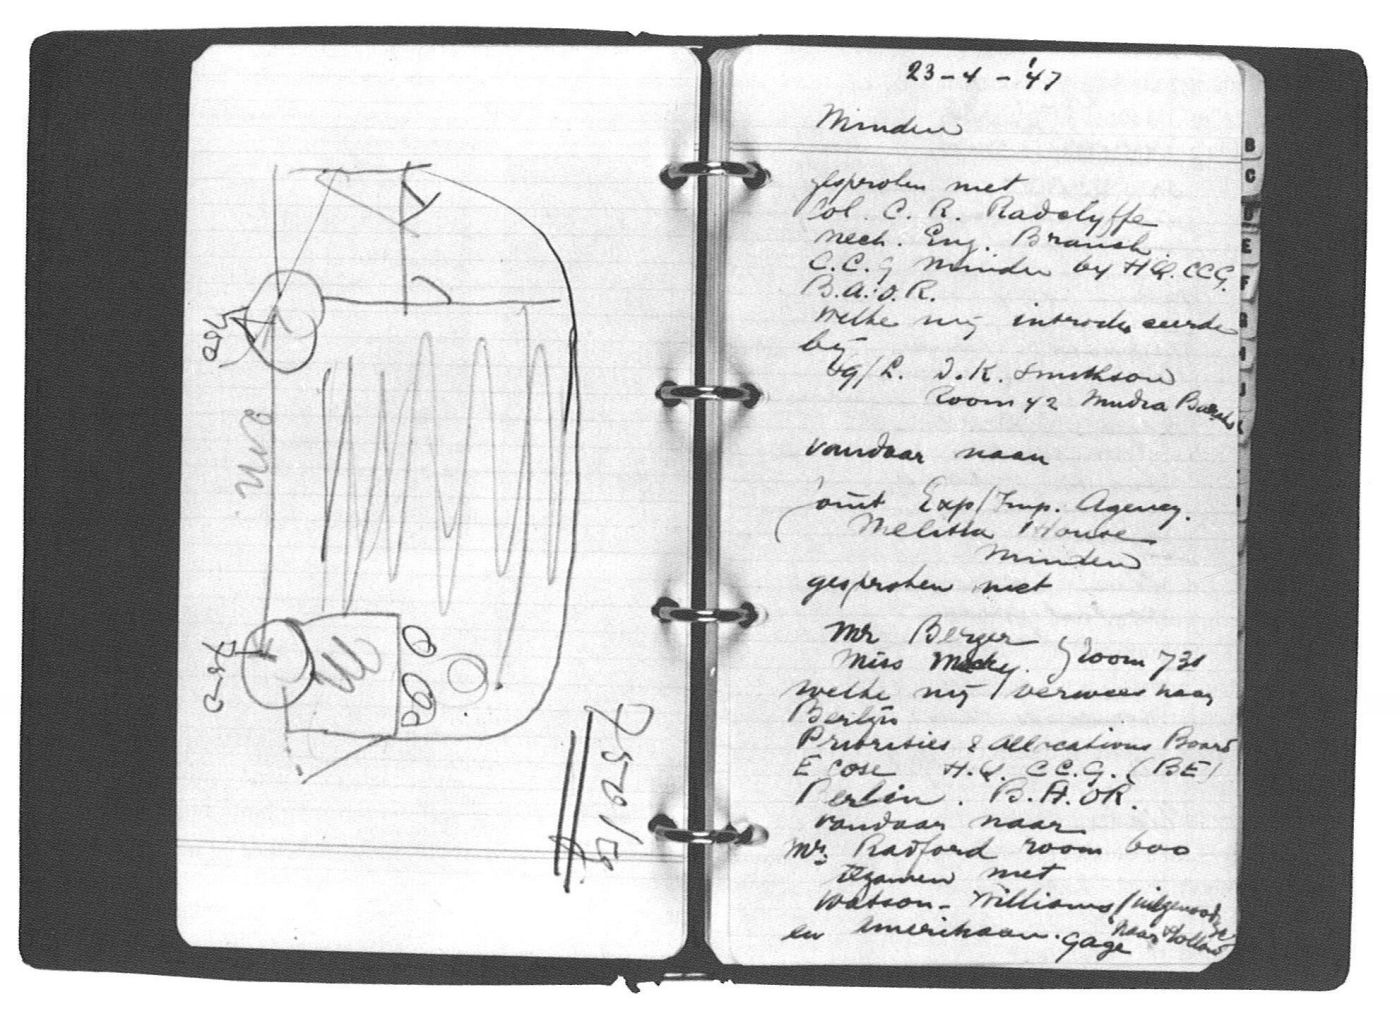 750 kg
750
750
23-4-'47
Minden
gesproken met
Col. C. R. Radclyffe
Mech. Eng. Branch
C.C.G Minden by H.Q. CCG.
B.A.O.R.
welke mij introduceerde
bij
D.K. Smithson
Room 42 Mudra
vandaar naar
Joint Exp/Imp. Agency.
Melitta House
Minden
gesproken met
Mr Berger
Miss } Room 731
welke mij verwees naar
Berlijn
Priorities & Allocations Board
E cose H.Q. CC.G. (BE)
Berlin. B.A.OR.
vandaar naar
Mr. Radford room 600
tezamen met
Watson-Williams (uitgenoodigd
naar Holland
en Amerikaan. Gage
B
C
D
E
F
G
H
J